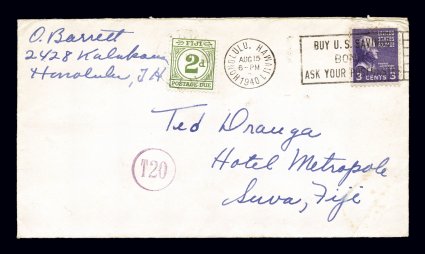 O. Barrett
2428 Kalakaua
Honolulu, T.H.
FIJI
2d
POSTAGE DUE
HONOLULU, HAWAII
AUG 15
6-PM
1940
BUY U.S. SAV
BON
ASK YOUR
3 CENTS 3
T20
Ted Dranga
Hotel Metropole
Suva, Fiji